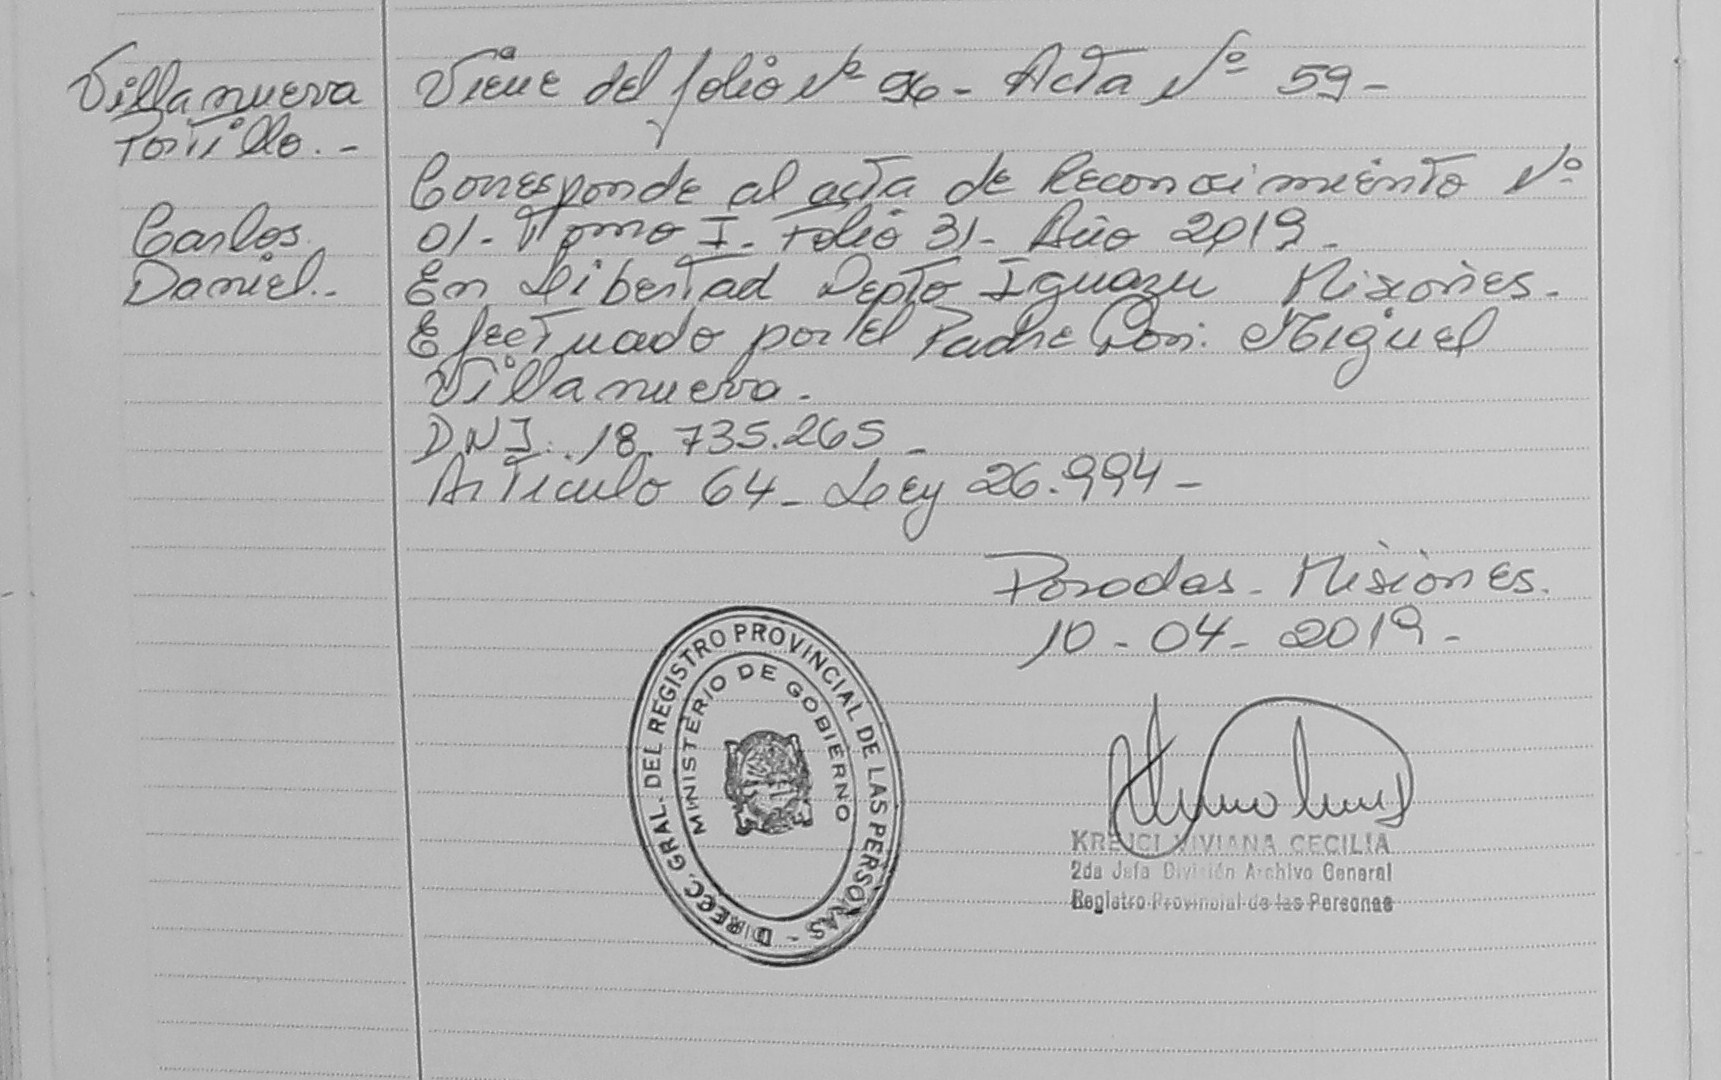 Villanueva
Portillo.-
Carlos
Daniel.-
Viene del folio Nº 96- Acta Nº 59-
Corresponde al acta de Reconocimiento Nº
01- Tomo I- Folio 31- Año 2019-
En Libertad Depto Iguazu Misiones.
Efectuado por el Padre Don: Miguel
Villanueva.
DNI: 18.735.265-
Articulo 64- Ley 26.994-
Posadas- Misiones.
10-04-2019-
DIRECC. GRAL. DEL REGISTRO PROVINCIAL DE LAS PERSONAS -
MINISTERIO DE GOBIERNO
KREJCI VIVIANA CECILIA
2da Jefa División Archivo General
Registro Provincial de las Personas